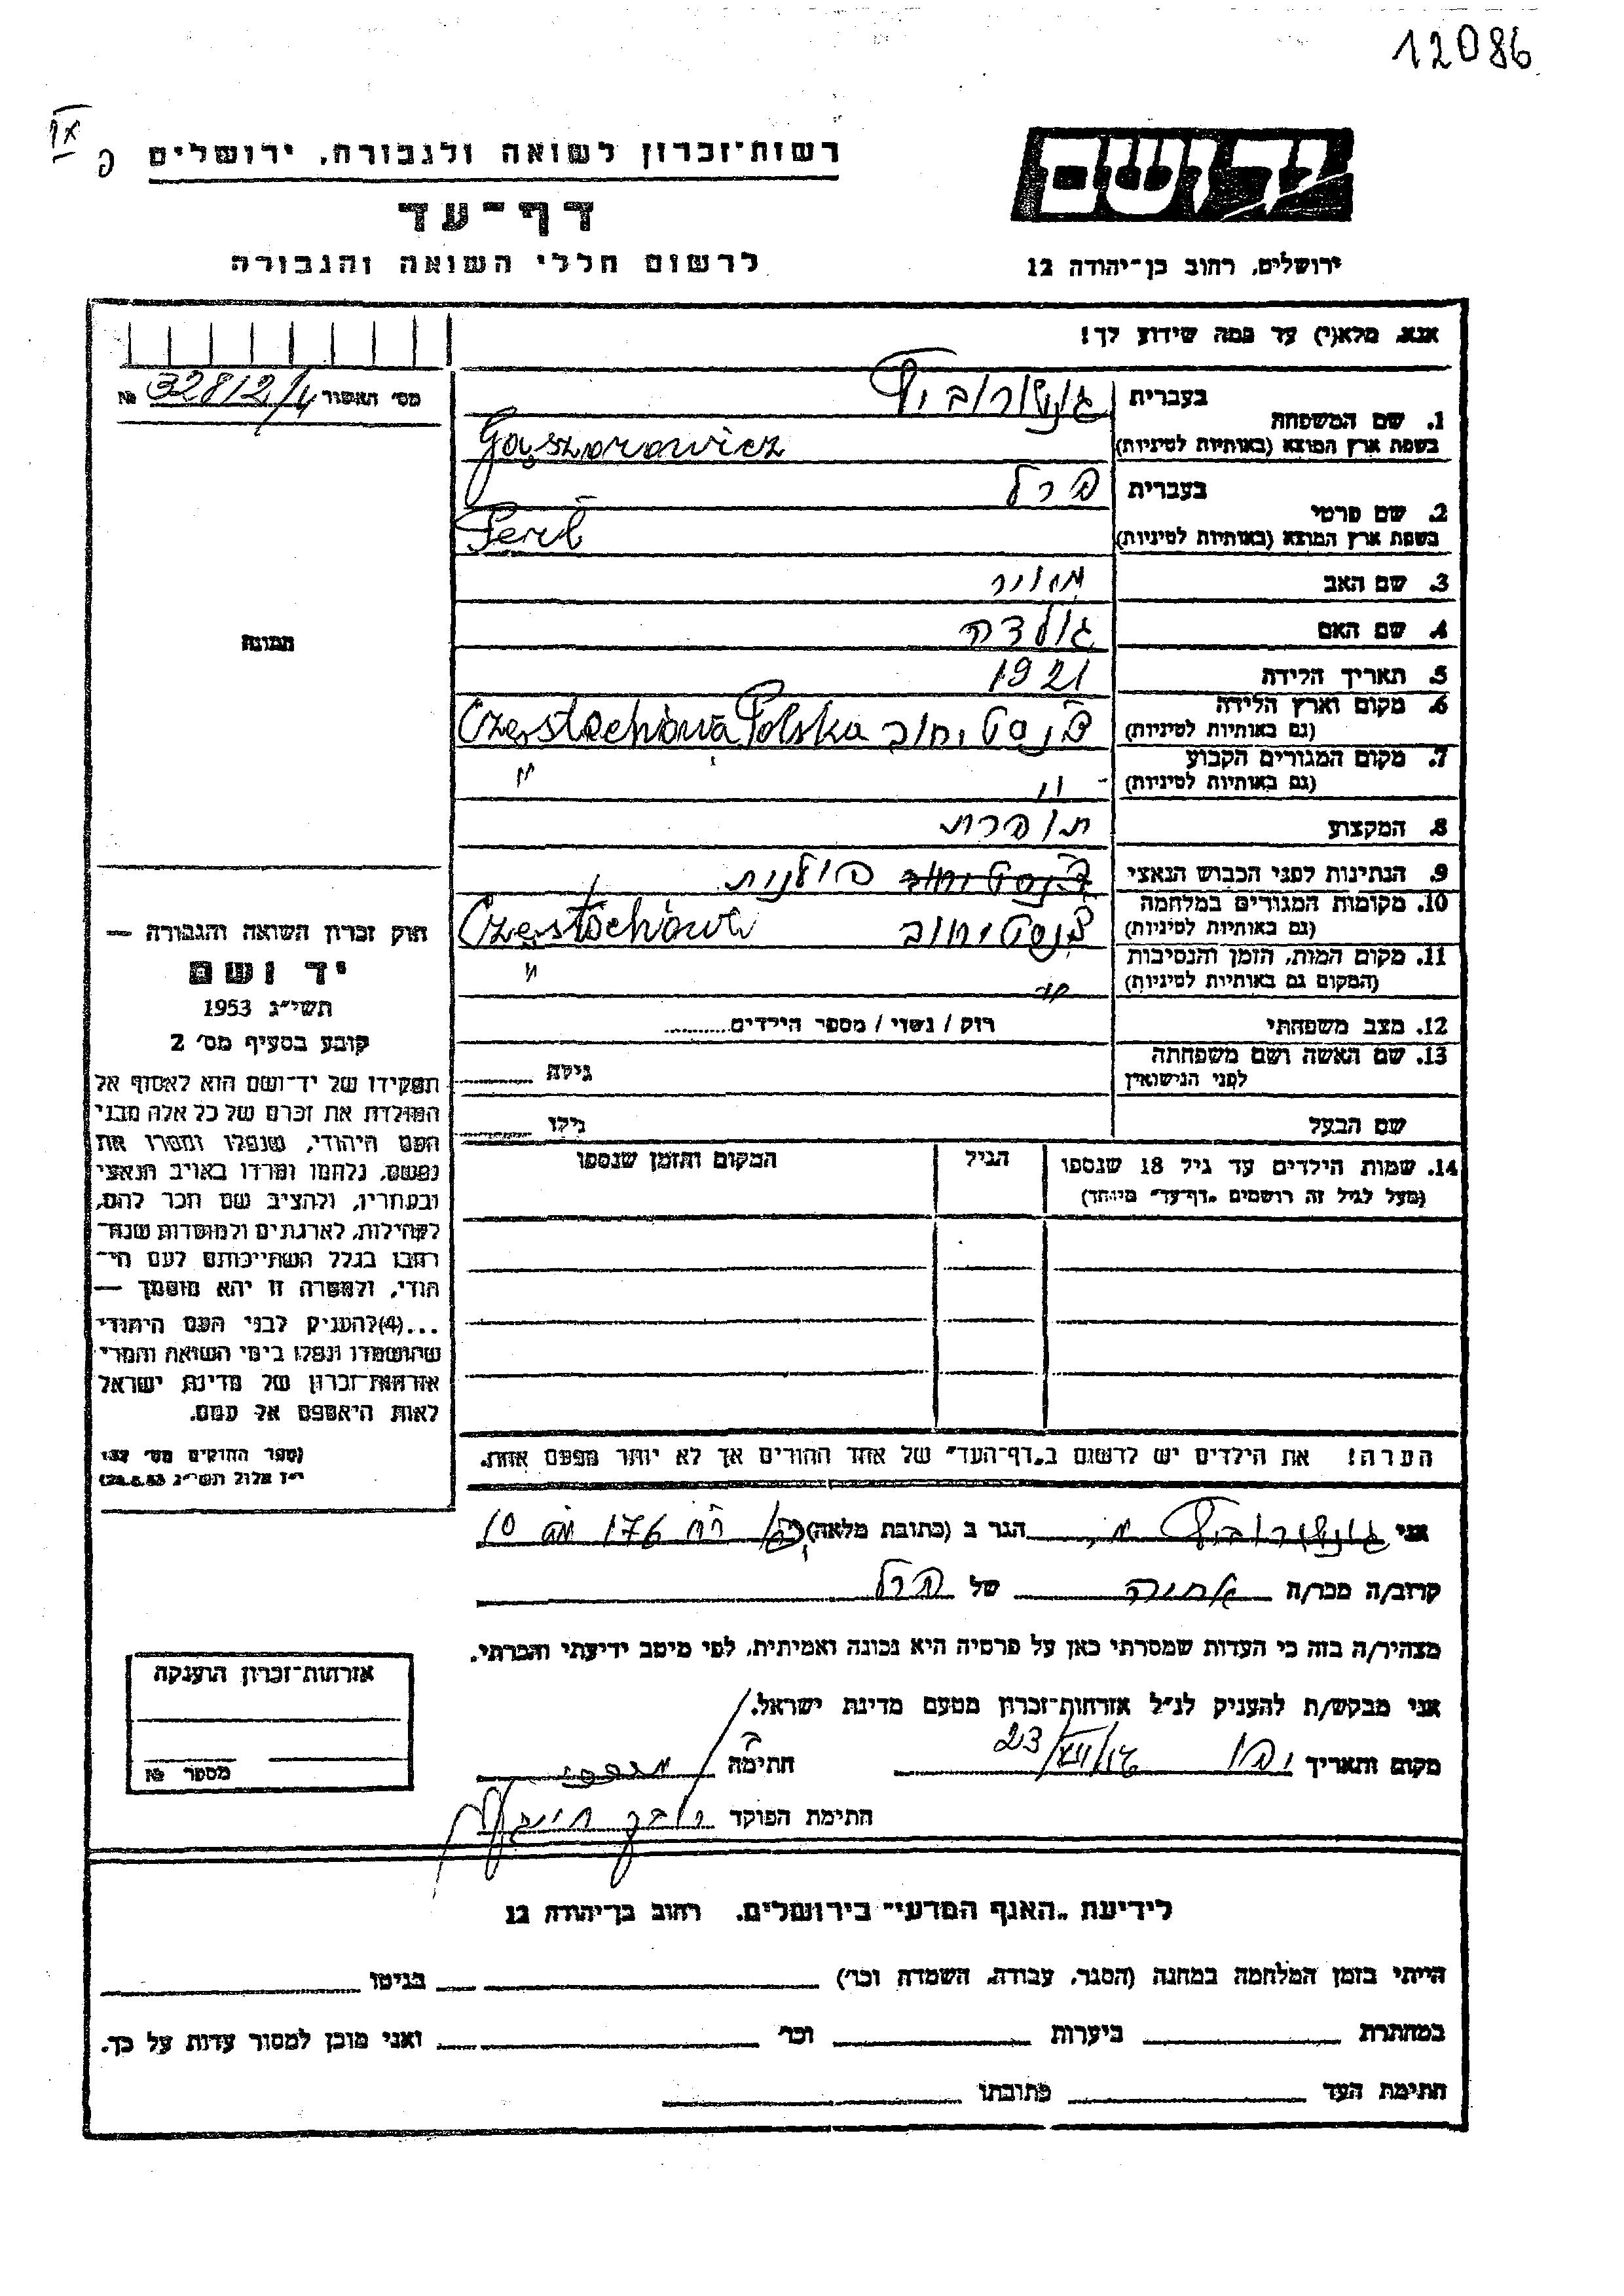 12086
רשות־זכרון לשואה ולגבורה, ירושלים
יד ושם
דף־עד
לרשום חללי השואה והגבורה
ירושלים, רחוב בן־יהודה 12
אנא, מלא(י) עד כמה שידוע לך!
מס׳ האשור № 32812/4
1. שם המשפחה
בעברית
בשפת ארץ המוצא (באותיות לטיניות) Gąszorowicz
2. שם פרטי
בעברית פרל
בשפת ארץ המוצא (באותיות לטיניות) Perl
3. שם האב מאיר
4. שם האם גולדה
5. תאריך הלידה 1921
6. מקום וארץ הלידה
(גם באותיות לטיניות) צ׳נסטיחוב Częstochówa Polska
7. מקום המגורים הקבוע
(גם באותיות לטיניות) " "
8. המקצוע תופרת
9. הנתינות לפני הכבוש הנאצי צ׳נסטיחוב פולנית
10. מקומות המגורים במלחמה
(גם באותיות לטיניות) צ׳נסטיחוב Częstochówa
11. מקום המות, הזמן והנסיבות
(המקום גם באותיות לטיניות) "
12. מצב משפחתי רווק / נשוי / מספר הילדים
13. שם האשה ושם משפחתה
לפני הנישואין גילה
שם הבעל גילו
14. שמות הילדים עד גיל 18 שנספו הגיל המקום והזמן שנספו
(מעל לגיל זה רושמים „דף־עד" מיוחד)
הערה! את הילדים יש לרשום ב„דף־העד" של אחד ההורים אך לא יותר מפעם אחת.
תמונה
חוק זכרון השואה והגבורה —
יד ושם
תשי״ג 1953
קובע בסעיף מס׳ 2
תפקידו של יד־ושם הוא לאסוף אל
המולדת את זכרם של כל אלה מבני
העם היהודי, שנפלו ומסרו את
נפשם, נלחמו ומרדו באויב הנאצי
ובעוזריו, ולהציב שם וזכר להם,
לקהילות, לארגונים ולמוסדות שנח־
רבו בגלל השתייכותם לעם הי־
הודי, ולמטרה זו יהא מוסמך —
...(4)להעניק לבני העם היהודי
שהושמדו ונפלו בימי השואה והמרי
אזרחות־זכרון של מדינת ישראל
לאות היאספם אל עמם.
(ספר החוקים מס׳ 132
י״ז אלול תשי״ג 28.8.53)
אני הגר ב (כתובת מלאה) 176 10
קרוב/ה מכר/ה אחיה של פרל
מצהיר/ה בזה כי העדות שמסרתי כאן על פרטיה היא נכונה ואמיתית, לפי מיטב ידיעתי והכרתי.
אני מבקש/ת להעניק לנ״ל אזרחות־זכרון מטעם מדינת ישראל.
מקום ותאריך יפו 23 חתימה
חתימת הפוקד
אזרחות־זכרון הוענקה
מספר №
לידיעת „האגף המדעי" בירושלים, רחוב בן־יהודה 12
הייתי בזמן המלחמה במחנה (הסגר, עבודה, השמדה וכו׳) בגיטו
במחתרת ביערות וכו׳ ואני מוכן למסור עדות על כך.
חתימת העד כתובתו